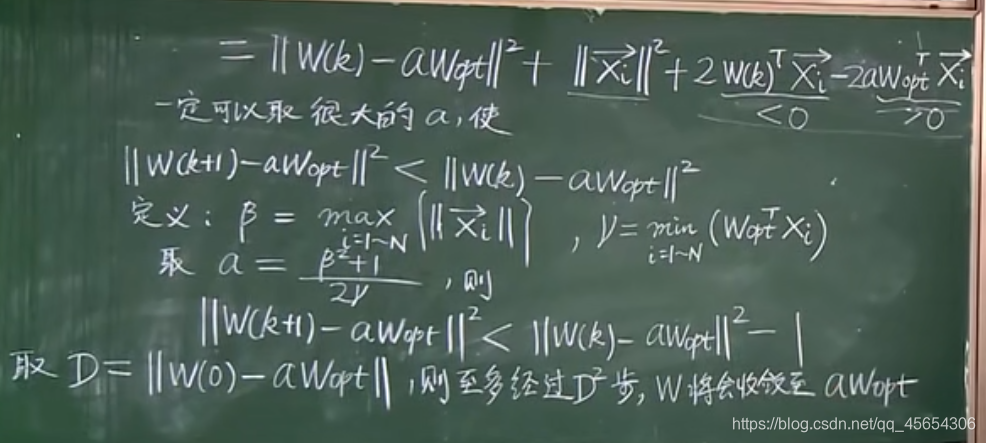 = ||W(k) - aWopt||² + ||X⃗i||² + 2W(k)ᵀX⃗i - 2aWoptᵀX⃗i
<0 >0
一定可以取很大的a,使
||W(k+1) - aWopt||² < ||W(k) - aWopt||²
定义: β = max i=1~N (||X⃗i||) , γ = min i=1~N (WoptᵀXi)
取 a = (β²+1)/2γ ,则
||W(k+1) - aWopt||² < ||W(k) - aWopt||² - 1
取 D = ||W(0) - aWopt|| ,则至多经过D²步,W将会收敛至 aWopt
https://blog.csdn.net/qq_45654306